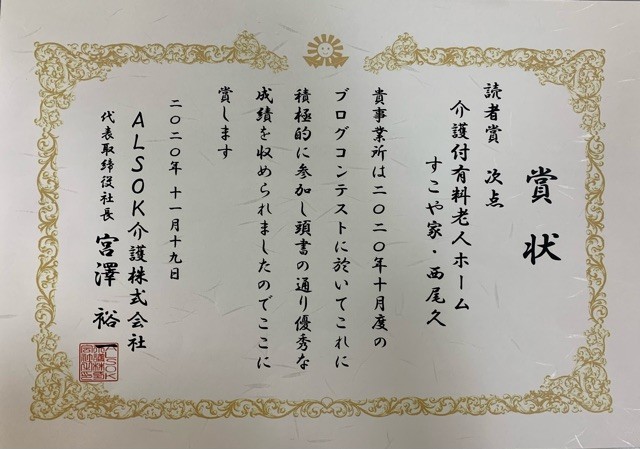 賞状
読者賞 次点
介護付有料老人ホーム
すこや家・西尾久
貴事業所は二〇二〇年十月度の
ブログコンテストに於いてこれに
積極的に参加し頭書の通り優秀な
成績を収められましたのでここに
賞します
二〇二〇年 十一月十九日
ALSOK介護株式会社
代表取締役社長 宮澤 裕一